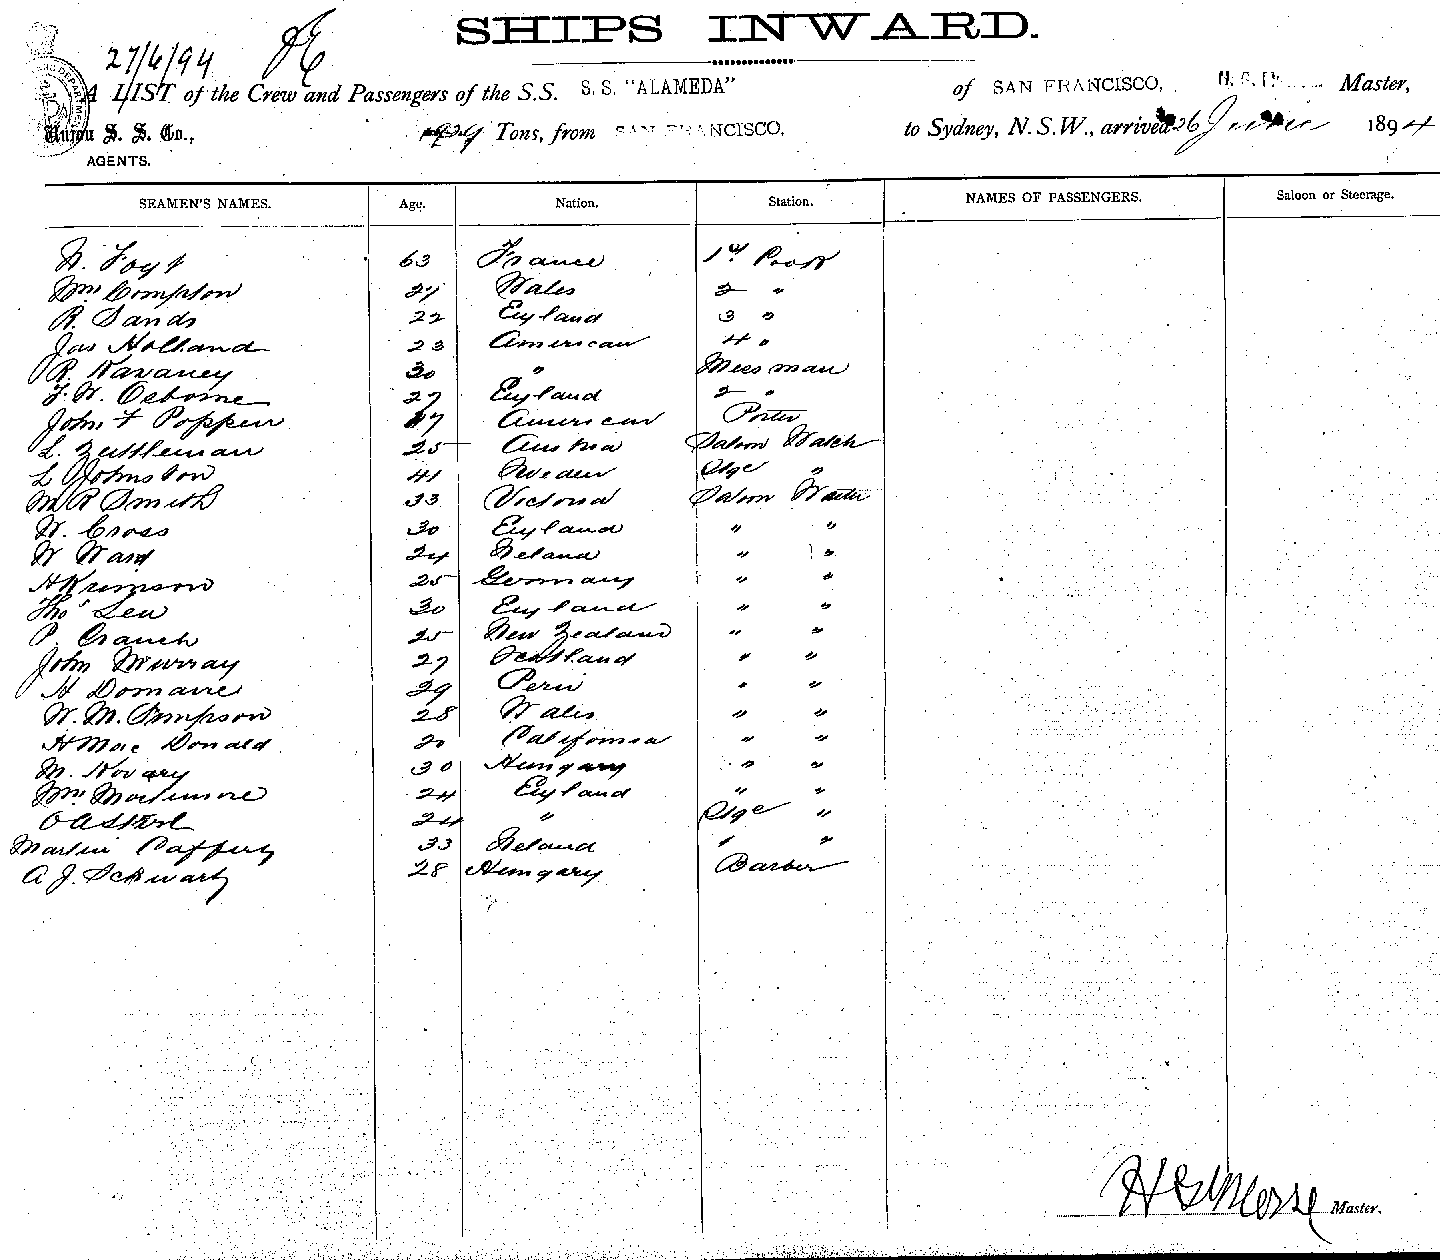 SHIPS INWARD.
27/6/94
A LIST of the Crew and Passengers of the S.S. S. S. "ALAMEDA" of SAN FRANCISCO, Master,
Union S. S. Co., Tons, from SAN FRANCISCO, to Sydney, N.S.W., arrived 26 June 1894
AGENTS.
SEAMEN'S NAMES. Age. Nation. Station. NAMES OF PASSENGERS. Saloon or Steerage.
63 France 1st Cook
Wm Compton 27 Wales 2 "
R. Sands 22 England 3 "
Jas Holland 23 American 4 "
R. Kavaney 30 " Messman
F. W. Osborne 27 England 2 "
John F Popper 47 American Porter
L. Zuttleman 25 Austria Saloon Watch
L Johnston 41 Sweden Stge "
M R Smith 33 Victoria Saloon Waiter
W. Cross 30 England " "
W Ward 24 Ireland " "
H Krimson 25 Germany " "
Thos Lew 30 England " "
P. Cranch 25 New Zealand " "
John Murray 27 Scotland " "
H Domaire 29 Peru " "
W. M. Simpson 28 Wales " "
H Mac Donald 20 California " "
M. Kovary 30 Hungary " "
Wm Mortimore 24 England " "
24 " Stge "
Martin Caffery 33 Ireland " "
A. J. Schwartz 28 Hungary Barber
H G Morse Master.